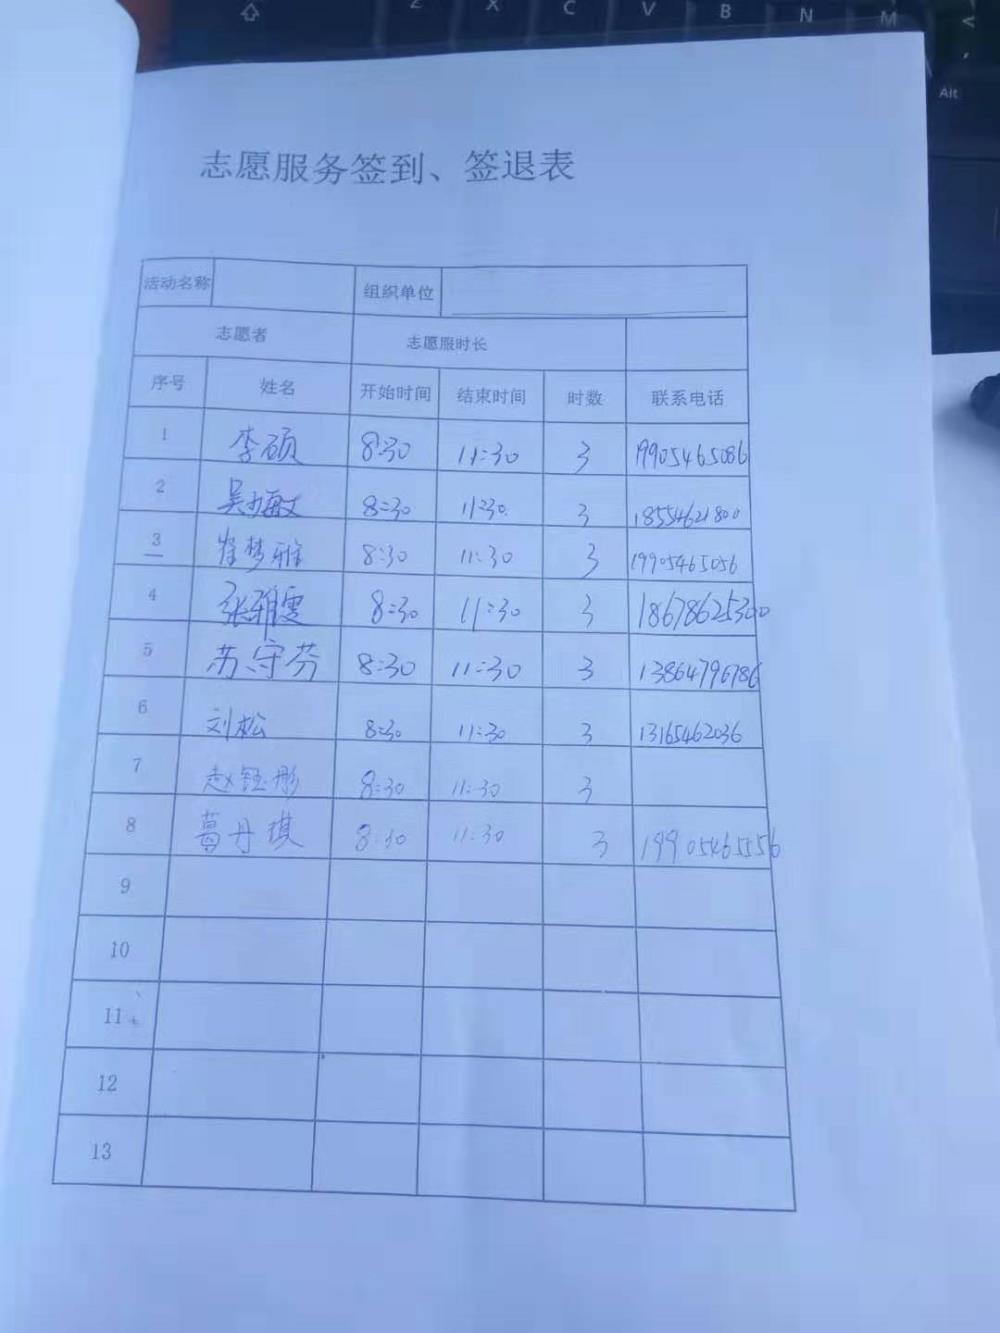 Z X C V B N M <
Alt
志愿服务签到、签退表
活动名称 组织单位
志愿者 志愿服时长
序号 姓名 开始时间 结束时间 时数 联系电话
1 李硕 8:30 11:30 3 19905465086
2 8:30 11:30 3 18554621800
3 崔梦雅 8:30 11:30 3 19905465056
4 张雅雯 8:30 11:30 3 18678625300
5 苏守芬 8:30 11:30 3 13864796786
6 刘松 8:30 11:30 3 13165462036
7 赵钰彤 8:30 11:30 3
8 葛丹琪 8:30 11:30 3 19905465556
9
10
11
12
13